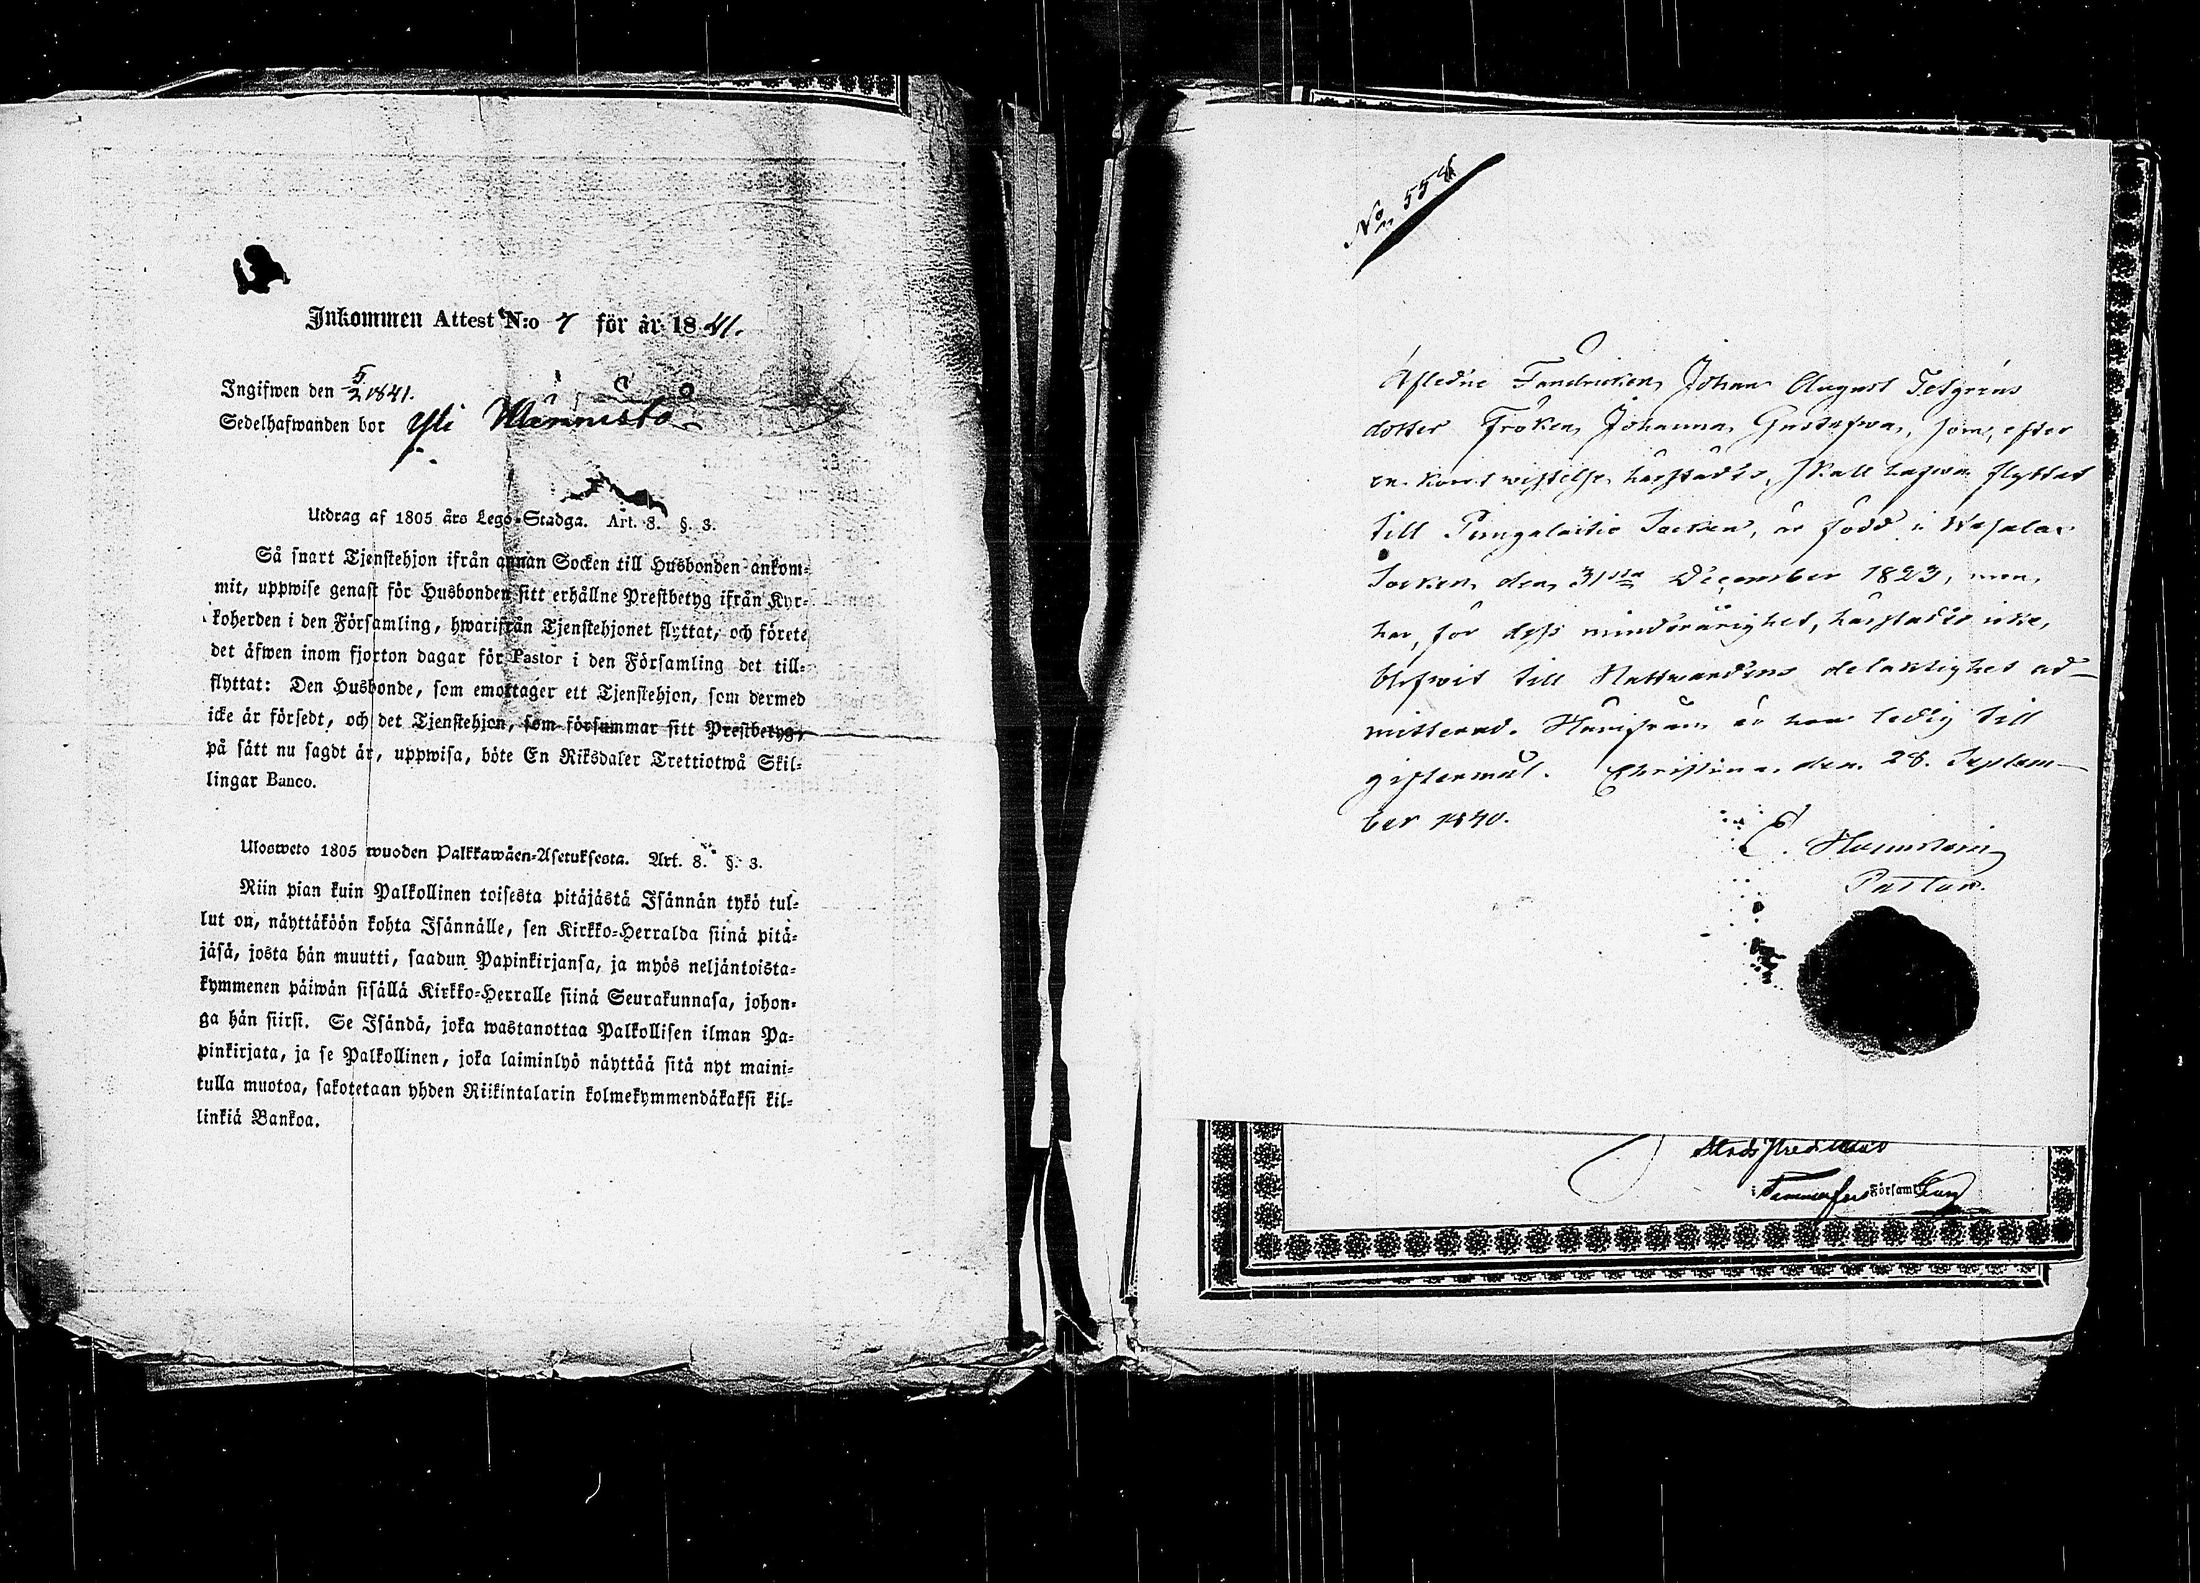 Inkommen Attest N:o 7 för år 1841.
Ingifwen den 5/2 1841.
Sedelhafwanden bor Yli Männistö
Utdrag af 1805 års Lego-Stadga. Art. 8. §. 3.
Så snart Tjenstehjon ifrån annan Socken till Husbonden ankom-
mit, uppwise genast för Husbonden sitt erhållne Prestbetyg ifrån Kyr-
koherden i den Församling, hwarifrån Tjenstehjonet flyttat, och förete
det äfwen inom fjorton dagar för Pastor i den Församling det till-
flyttat: Den Husbonde, som emottager ett Tjenstehjon, som dermed
icke är försedt, och det Tjenstehjon, som försummar sitt Prestbetyg,
på sätt nu sagdt är, uppwisa, böte En Riksdaler Trettiotwå Skil-
lingar Banco.
Ulosweto 1805 wuoden Palkkawäen-Asetuksesta. Art. 8. §. 3.
Niin pian kuin Palkollinen toisesta pitäjästä Isännän tykö tul-
lut on, näyttäköön kohta Isännälle, sen Kirkko-Herralda siinä pitä-
jäsä, josta hän muutti, saadun Papinkirjansa, ja myös neljäntoista-
kymmenen päiwän sisällä Kirkko-Herralle siinä Seurakunnasa, johon-
ga hän siirsi. Se Isändä, joka wastanottaa Palkollisen ilman Pa-
pinkirjata, ja se Palkollinen, joka laiminlyö näyttää sitä nyt maini-
tulla muotoa, sakotetaan yhden Riikintalarin kolmekymmendäkaksi kil-
linkiä Bankoa.
No 554
Afledne Fendricken Johan August Tetgréns
dotter Fröken Johanna Gustafwa, som, efter
en kort wistelse härstädes, skall hafwa flyttat
till Pungalaitio Socken, är född i Wesala
Socken den 31sta December 1823, men
har, för dess minderårighet, härstädes icke
blifwit till Nattwardens delaktighet ad-
mitterad. Hinderfri är hon ledig till
giftermål. Christina den 28. Septem-
ber 1840.
Pastor.
i Tammerfors Församling